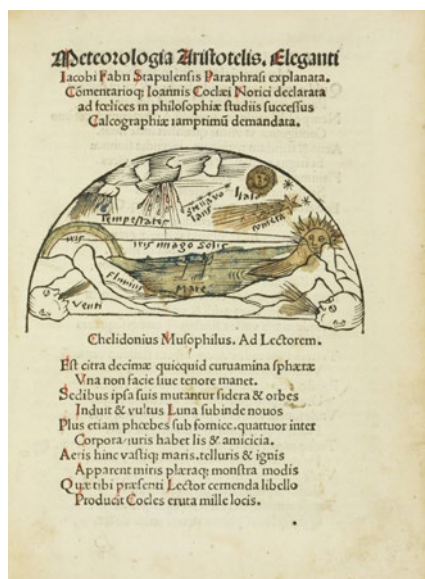 Meteorologia Aristotelis. Eleganti
Iacobi Fabri Stapulensis Paraphrasi explanata.
Cōmentarioq; Ioannis Coclæi Norici declarata
ad fœlices in philosophiæ studiis successus
Calcographiæ iamprimū demandata.
Tempestates
Stella vo
lans
Hal
cometa
iris
iris imago Solis
Fluuius
Mare
Venti
Chelidonius Musophilus. Ad Lectorem.
Est citra decimæ quicquid curuamina sphæræ
Vna non facie siue tenore manet.
Sedibus ipsa suis mutantur sidera & orbes
Induit & vultus Luna subinde nouos
Plus etiam phœbes sub fornice. quattuor inter
Corpora iuris habet lis & amicicia.
Aeris hinc vastiq; maris. telluris & ignis
Apparent miris plæraq; monstra modis
Quæ tibi præsenti Lector cernenda libello
Producit Cocles eruta mille locis.